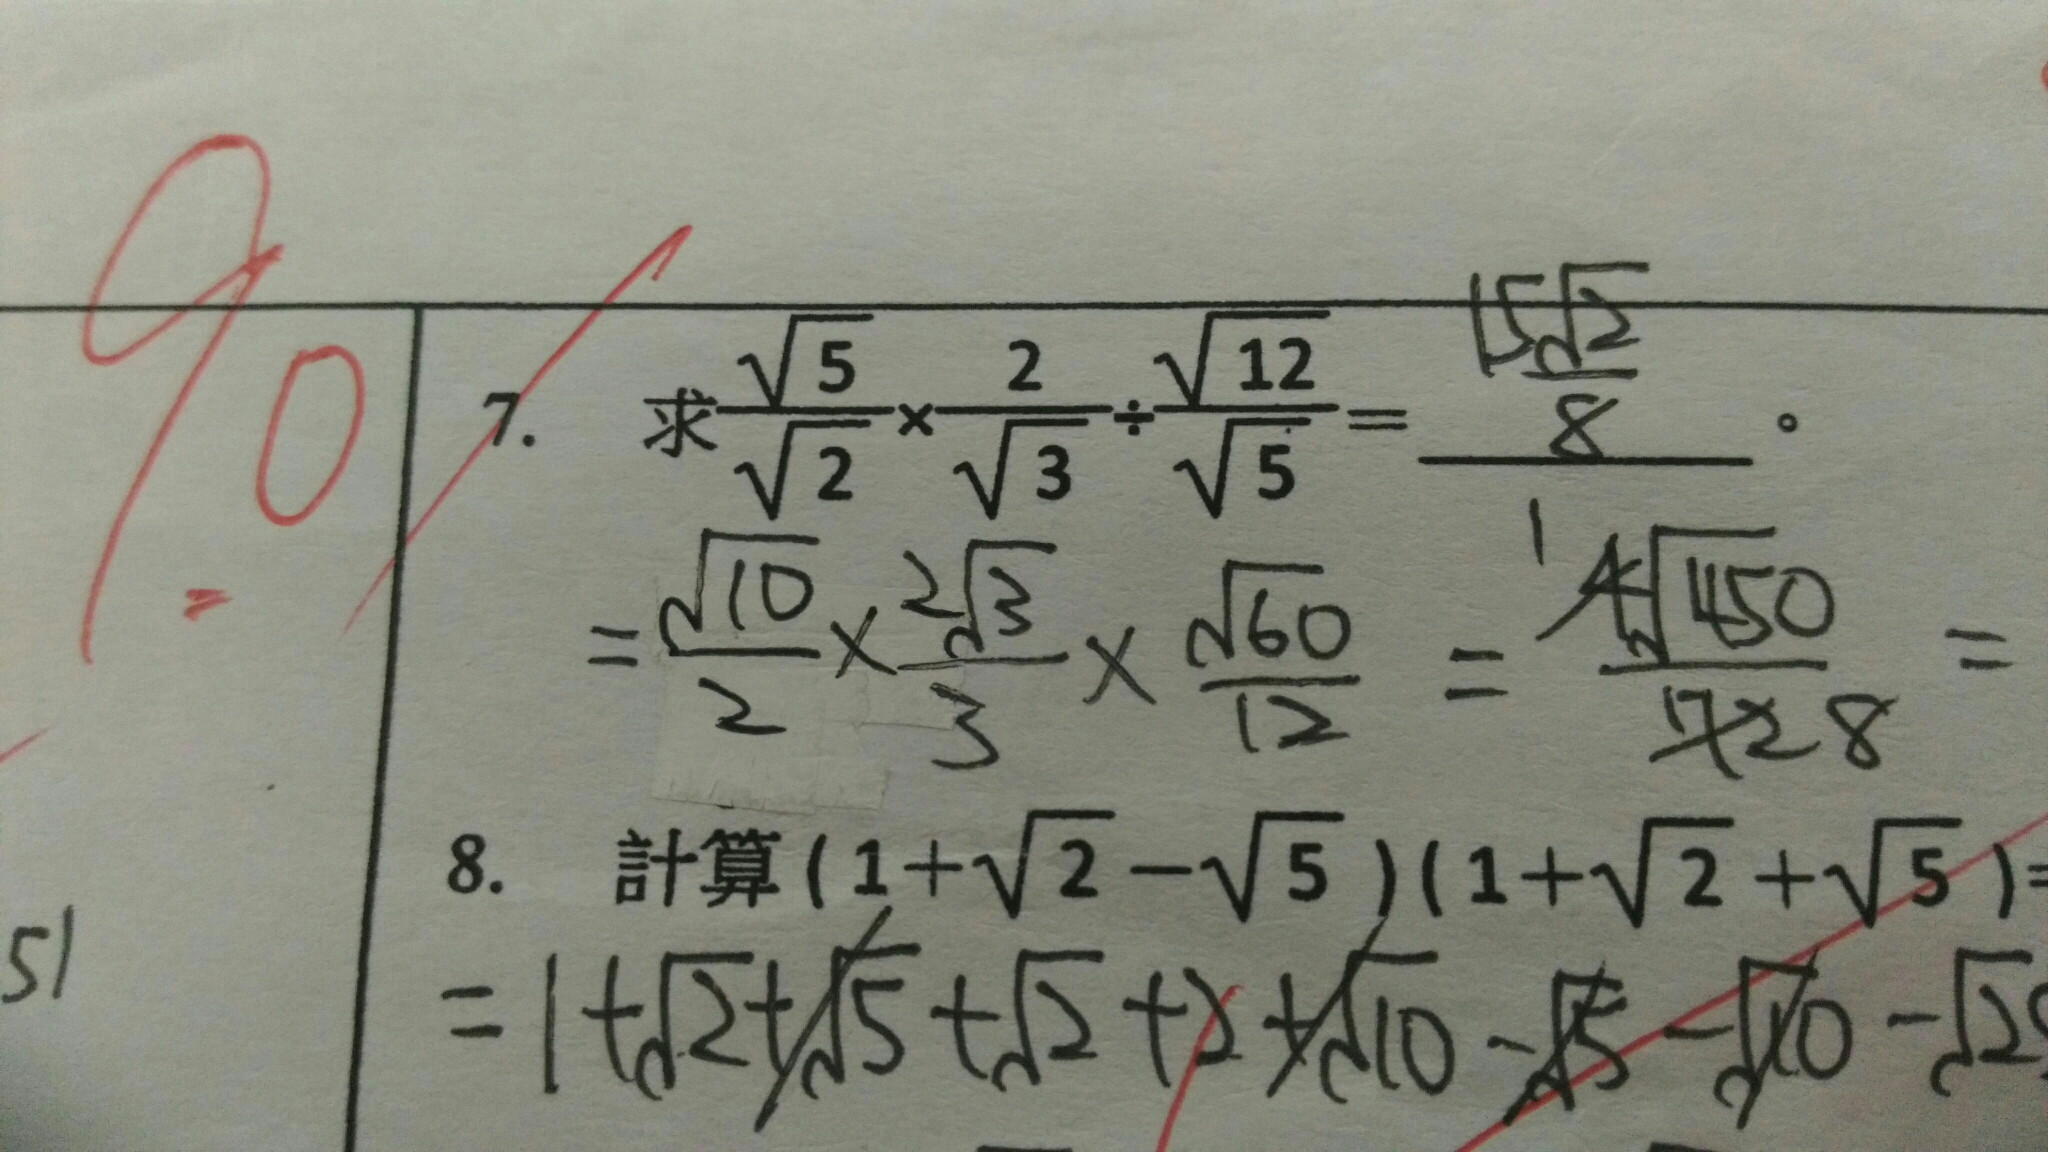 90
7. 求 √5/√2 × 2/√3 ÷ √12/√5 = 15√2/8 。
= √10/2 × 2√3/3 × √60/12 = 1 4√450/72 8 =
8. 計算 (1+√2−√5)(1+√2+√5)=
51
= 1+√2+√5+√2+2+√10−√5−√10−√25